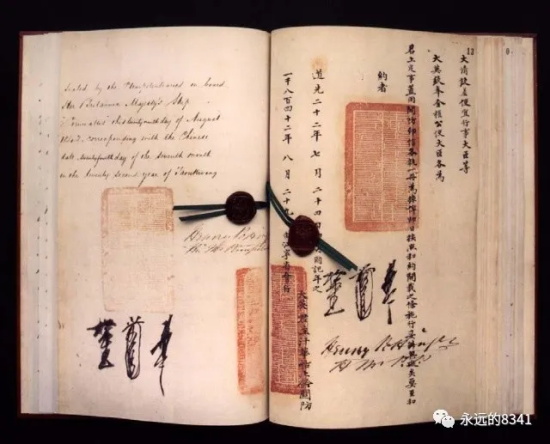 Sealed by the Plenipotentiaries on board
Her Britannic Majesty's Ship
Cornwallis this twenty ninth day of August
1842 corresponding with the Chinese
date, twenty fourth day of the seventh month
in the twenty second year of Taoukwang
Henry Pottinger
12
大清欽差便宜行事大臣等
大英欽奉全權公使大臣各為
君上定事蓋用關防印信各執一冊為據俾即日按照和約開載之條施行妥辦無礙矣要至和
約者
道光二十二年七月二十四日即英國記年之
一千八百四十二年八月二十九日由江寧省會行
大英君主汗華船上鈐關防
Henry Pottinger
永远的8341